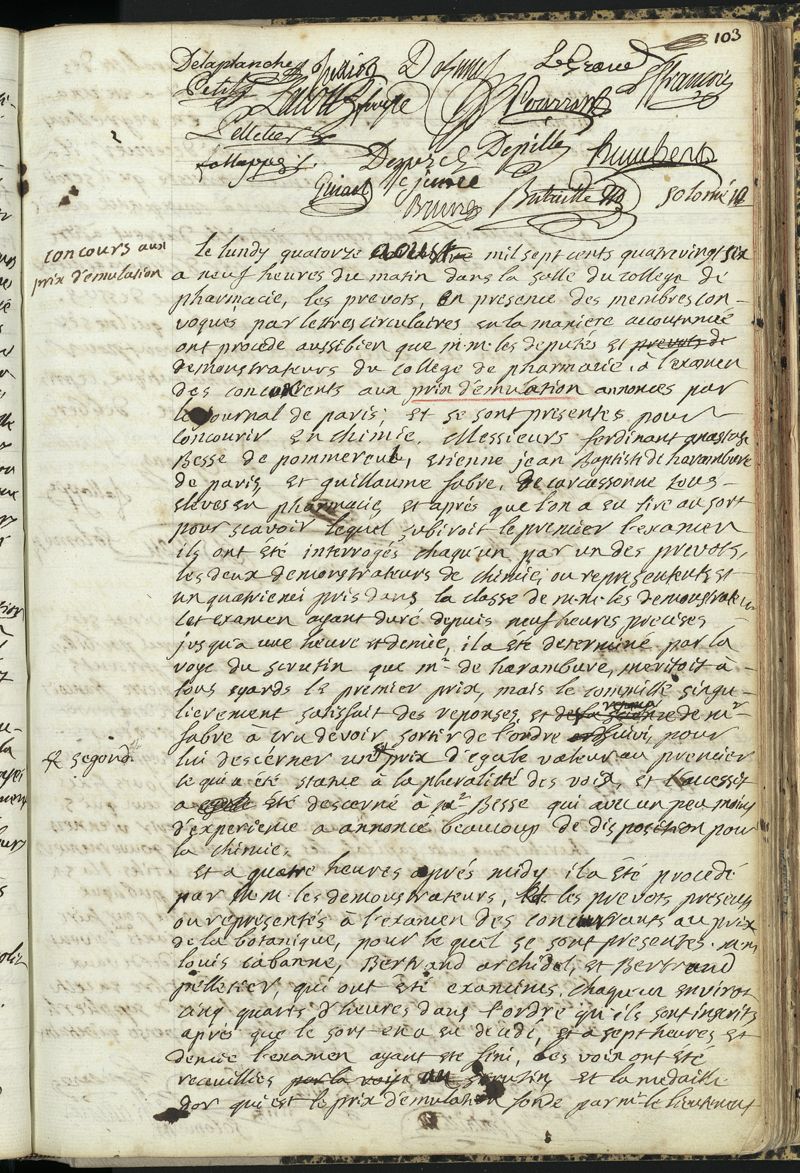 103
Delaplanche Jullion LeGrand
Petit Pourrat
Pelletier
Demoret Depille Brumbert
Guiart le jeune
Brun Bataille Solomé
concours aux
prix d'émulation
Le lundy quatorze aoust mil sept cents quatrevingt six
a neuf heures du matin dans la salle du college de
pharmacie, les prevots, en presence des membres con-
voqués par lettres circulaires en la maniere accoutumée
ont procedé aussibien que m.m. les deputés et prevots de
demonstrateurs du college de pharmacie à l'examen
des concurrents aux prix d'émulation annoncés par
le journal de paris; et se sont presentés pour
concourir en chimie, Messieurs ferdinant anastase
Besse de pommereul, etienne jean Baptiste de harambure
de paris, et guillaume fabre, de carcassonne tous
eleves en pharmacie, et aprés que l'on a eu tiré au sort
pour scavoir lequel subiroit le premier l'examen
ils ont été interrogés chaqu'un par un des prevots,
les deux demonstrateurs de chimie, ou representents et
un quatrieme pris dans la classe de m.m. les demonstrateurs
cet examen ayant duré depuis neuf heures precises
jusqu'a une heure et demie, il a été determiné par la
voye du scrutin que mr. de harambure, meritoit à
tous egards le premier prix, mais le committé singu-
lierement satisfait des reponses, et de la science de mr
fabre a cru devoir sortir de l'ordre suivi, pour
segond
lui descérner un prix d'egale valeur au premier
ce qui a été statué à la pluralitté des voix, et l'accessit
a été descerné à mr Besse qui avec un peu moins
d'experience a annoncé beaucoup de disposition pour
la chimie.
Et a quatre heures aprés midy il a été procedé
par m.m. les demonstrateurs, les prevots presents
ou representés à l'examen des concurrants au prix
de la botanique, pour le quel se sont presentés m.m
louis cabanne, Bertrand archidel, et Bertrand
pelletier, qui ont été examinés, chaqu'un environ
cinq quarts d'heures dans l'ordre qu'ils sont inscrits
aprés que le sort en a eu decidé, et a sept heures et
demie l'examen ayant été fini, les voix ont été
receuillies par la voix au scrutin, et la medaille
dor qui est le prix d'emulation fondé par mr. le lieutenant